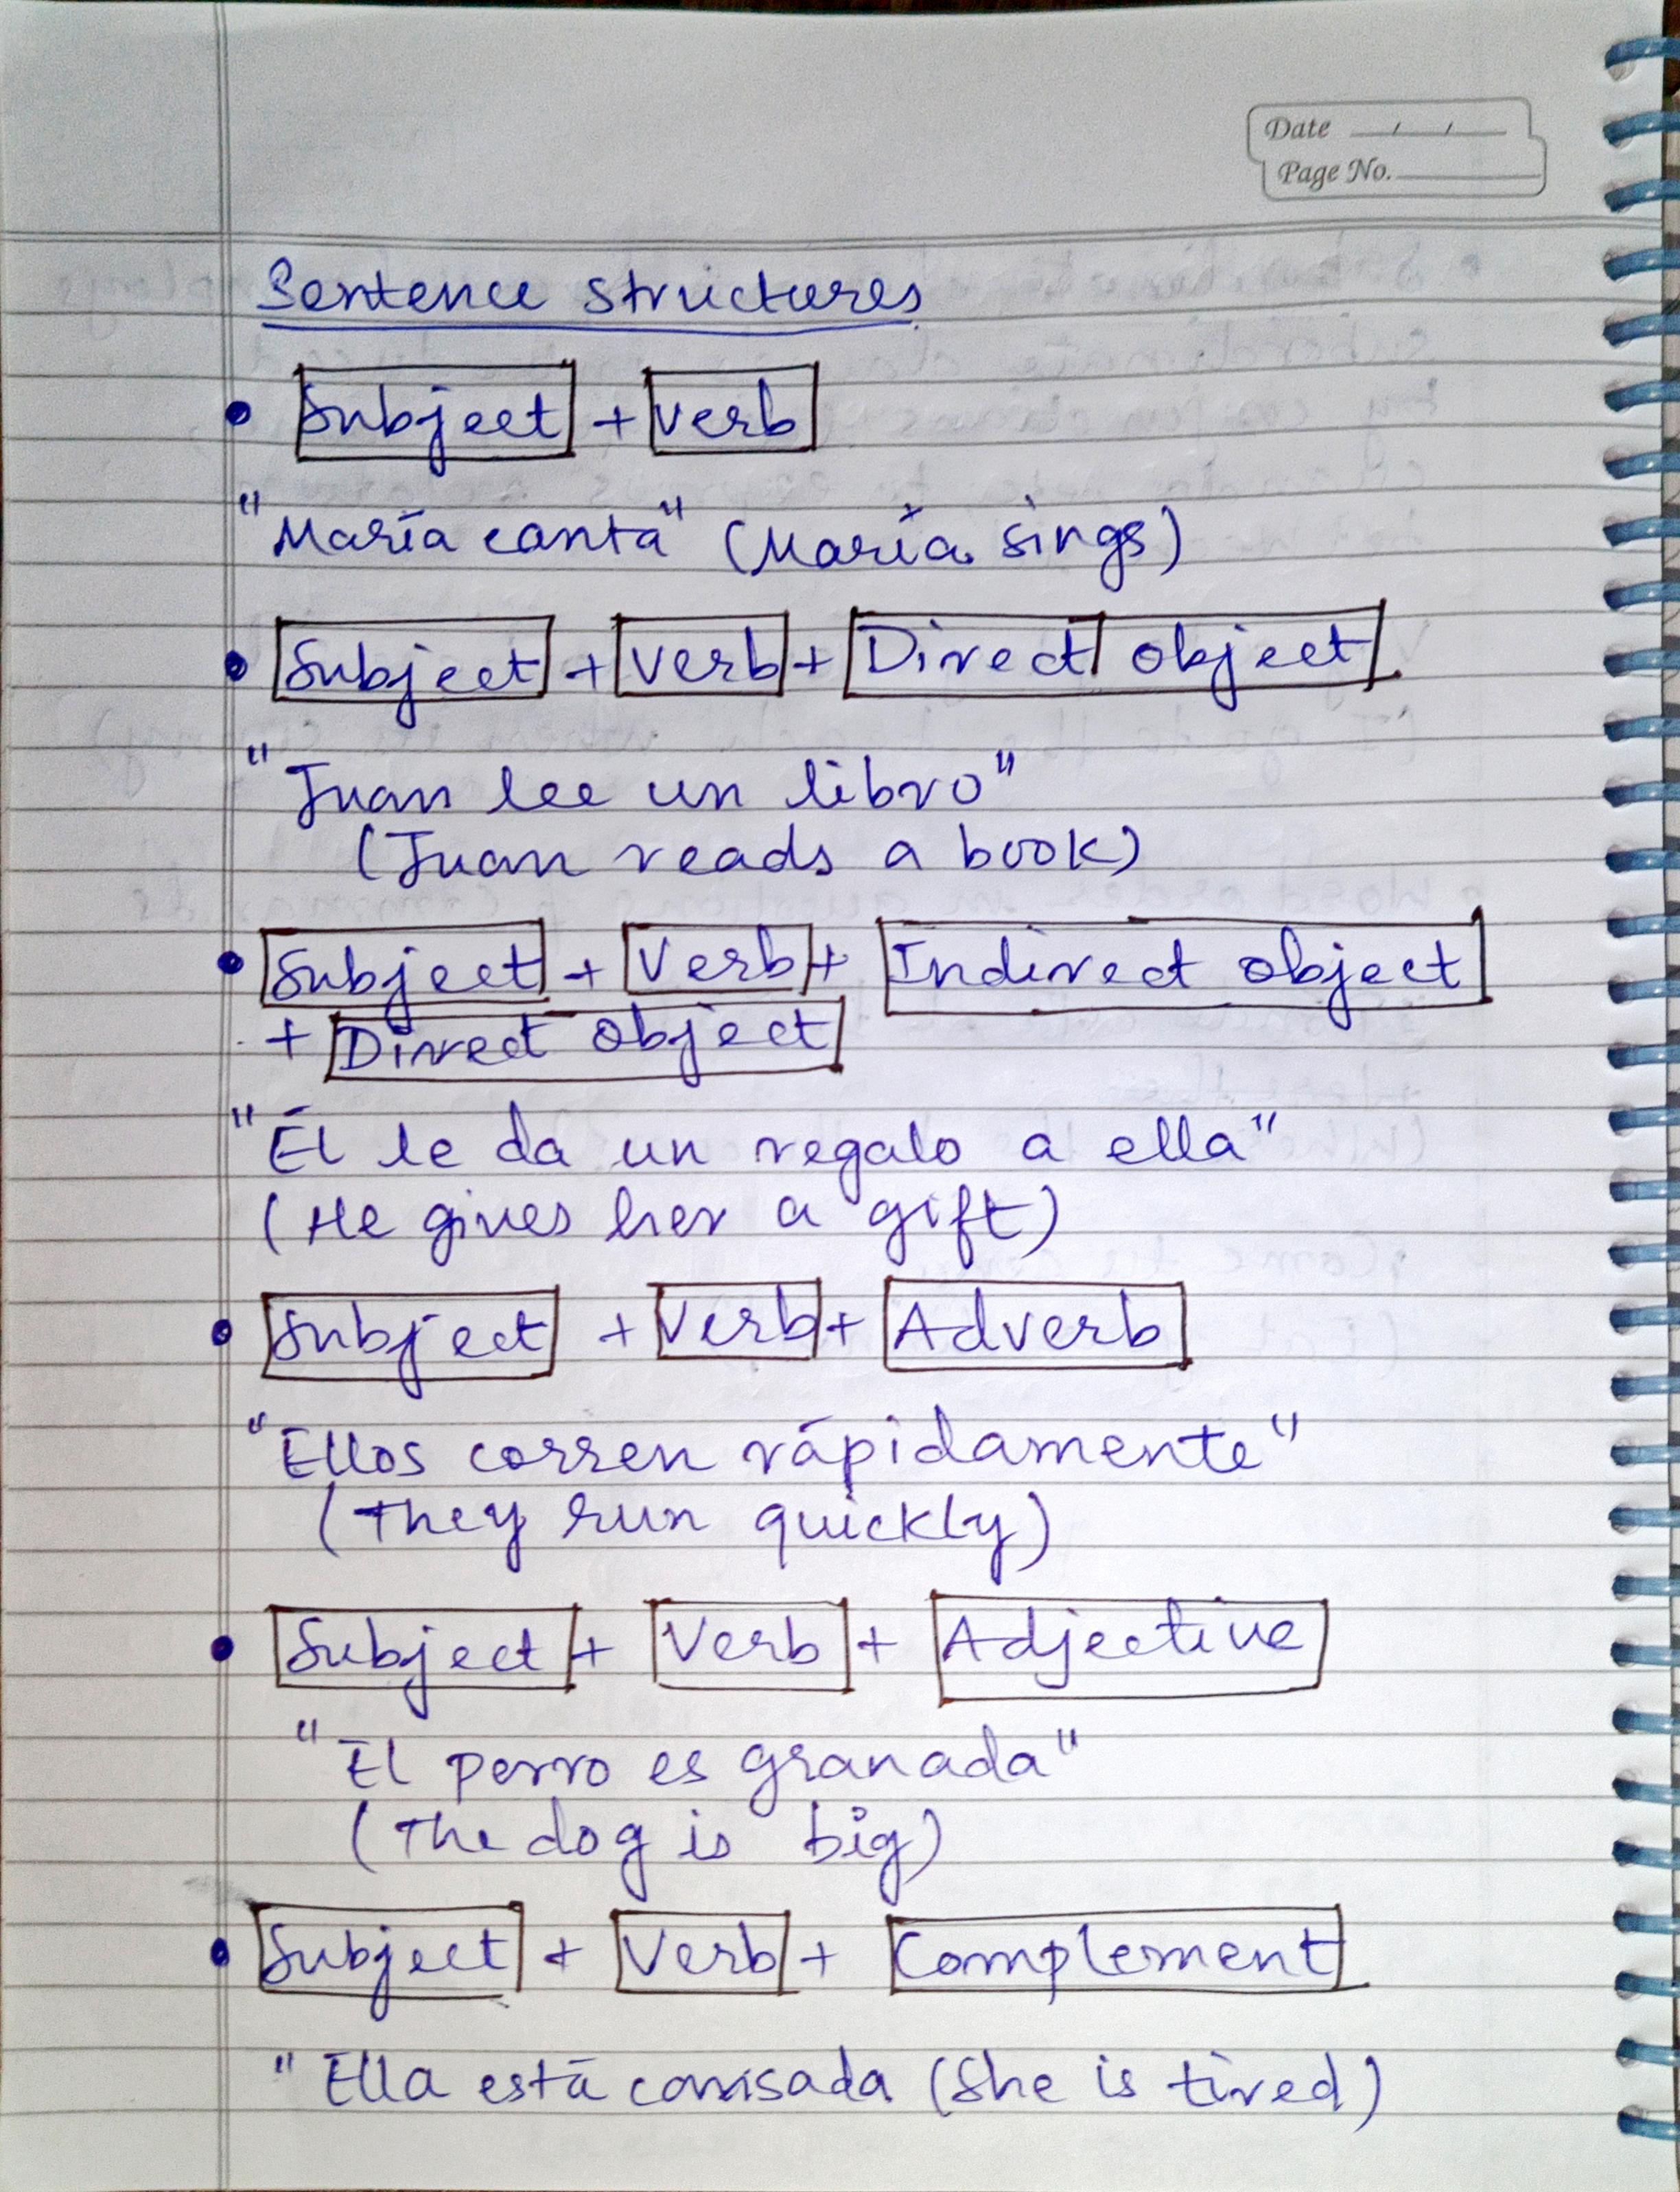 Date / /
Page No.
Sentence structures
• Subject + Verb
"María canta" (María sings)
• Subject + Verb + Direct object
"Juan lee un libro"
(Juan reads a book)
• Subject + Verb + Indirect object
+ Direct object
"Él le da un regalo a ella"
(He gives her a gift)
• Subject + Verb + Adverb
"Ellos corren rápidamente"
(They run quickly)
• Subject + Verb + Adjective
"El perro es granada"
(The dog is big)
• Subject + Verb + Complement
"Ella está cansada (She is tired)